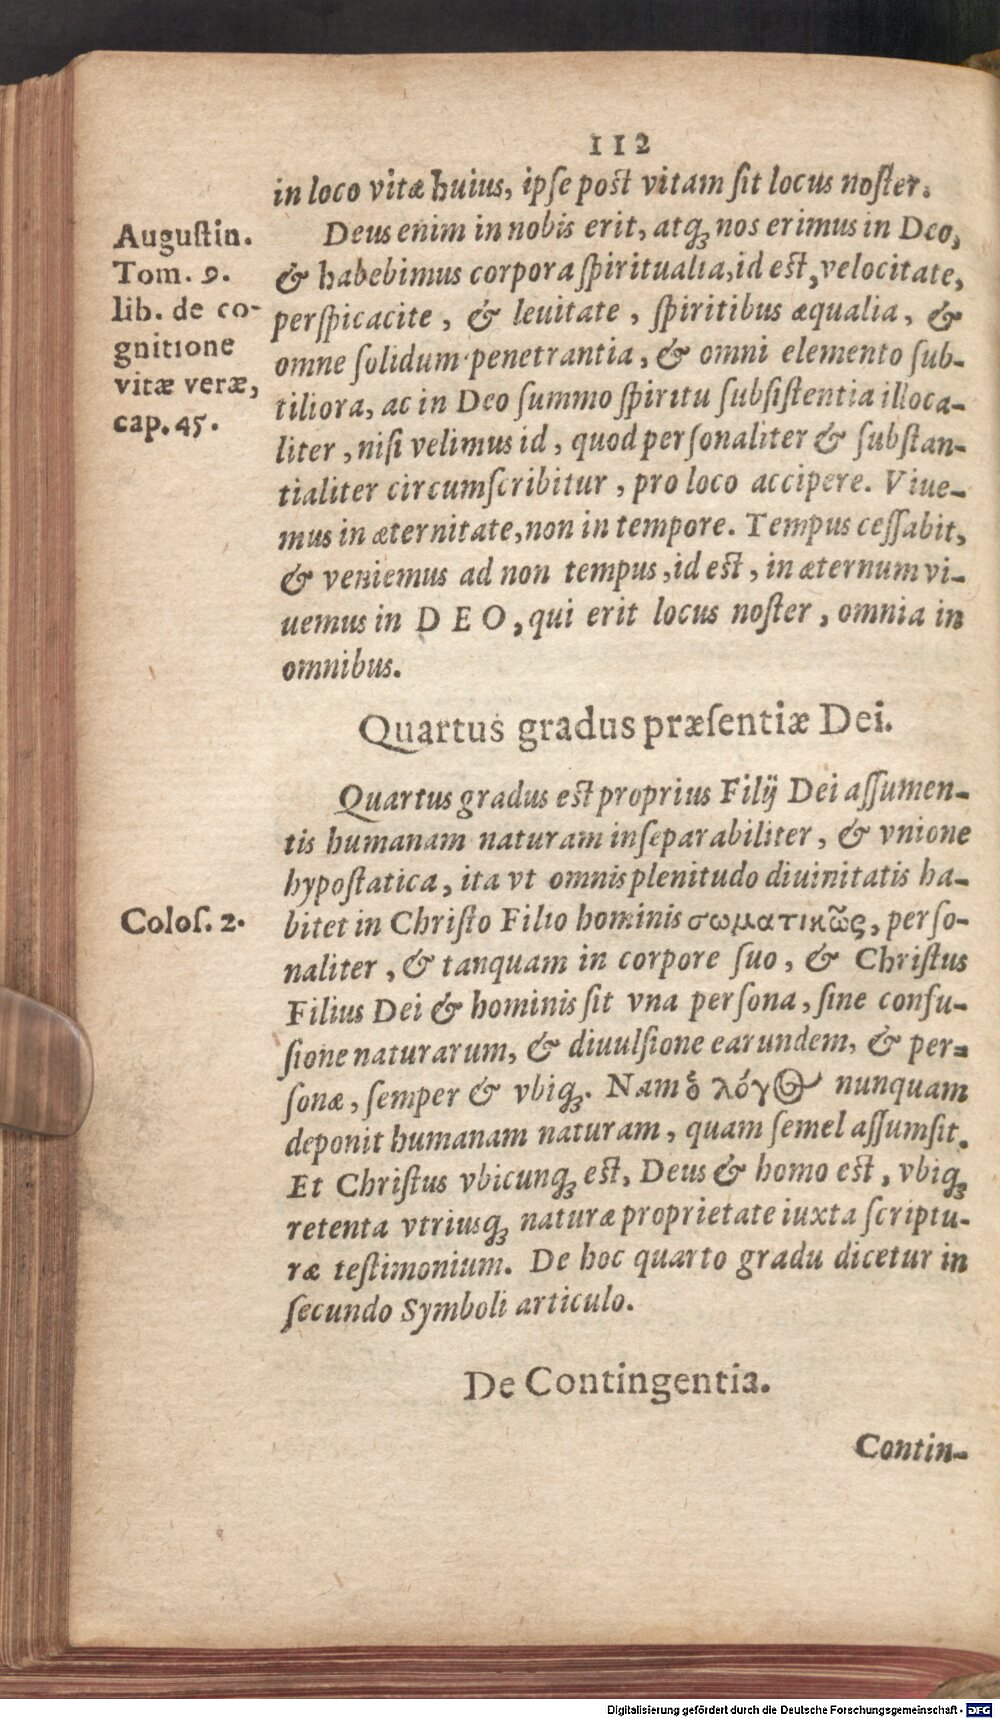 112
in loco vitæ huius, ipſe post vitam ſit locus noſter.
Augustin.
Tom. 9.
lib. de co-
gnitione
vitæ veræ,
cap. 45.
Deus enim in nobis erit, atq́ꝫ nos erimus in Deo,
& habebimus corpora ſpiritualia, id est, velocitate,
perſpicacite, & leuitate, ſpiritibus æqualia, &
omne ſolidum penetrantia, & omni elemento ſub-
tiliora, ac in Deo ſummo ſpiritu ſubſiſtentia illoca-
liter, niſi velimus id, quod perſonaliter & ſubſtan-
tialiter circumſcribitur, pro loco accipere. Viue-
mus in æternitate, non in tempore. Tempus ceſſabit,
& veniemus ad non tempus, id est, in æternum vi-
uemus in DEO, qui erit locus noſter, omnia in
omnibus.
Quartus gradus præſentiæ Dei.
Quartus gradus est proprius Filij Dei aſſumen-
tis humanam naturam inſeparabiliter, & vnione
hypoſtatica, ita vt omnis plenitudo diuinitatis ha-
Coloſ. 2.
bitet in Chriſto Filio hominis σωματικῶς, perſo-
naliter, & tanquam in corpore ſuo, & Chriſtus
Filius Dei & hominis ſit vna perſona, ſine confu-
ſione naturarum, & diuulſione earundem, & per-
ſonæ, ſemper & vbiqꝫ. Nam ὁ λόγος nunquam
deponit humanam naturam, quam ſemel aſſumſit.
Et Chriſtus vbicunqꝫ est, Deus & homo est, vbiqꝫ
retenta vtriusqꝫ naturæ proprietate iuxta ſcriptu-
ræ teſtimonium. De hoc quarto gradu dicetur in
ſecundo Symboli articulo.
De Contingentia.
Contin-
Digitalisierung gefördert durch die Deutsche Forschungsgemeinschaft - DFG